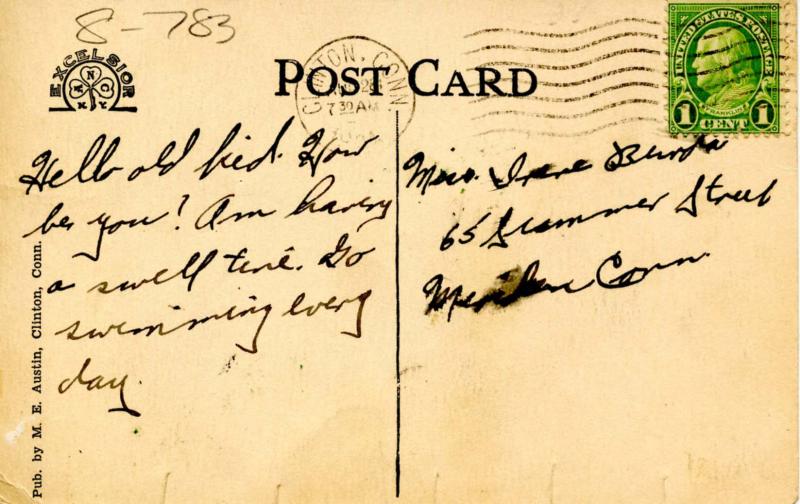 8-783
EXCELSIOR
POST CARD
CLINTON, CONN.
7 30 AM
UNITED STATES POSTAGE
FRANKLIN
1 CENT 1
Hello old kid. How
be you? Am having
a swell time. Go
swimming every
day.
Miss. Irene
65 Street
Meriden Conn.
Pub. by M. E. Austin, Clinton, Conn.